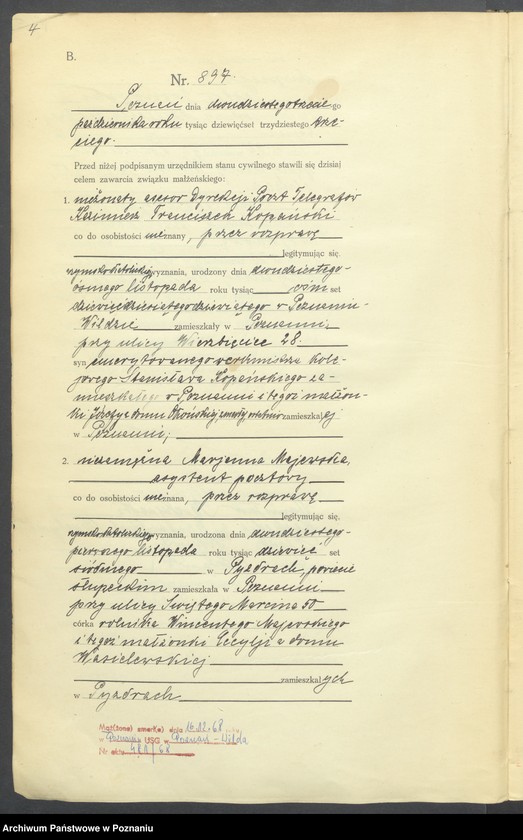 4
B.
Nr. 897.
Poznań dnia dwudziestego trzeciego
października roku tysiąc dziewięćset trzydziestego trze-
ciego.
Przed niżej podpisanym urzędnikiem stanu cywilnego stawili się dzisiaj
celem zawarcia związku małżeńskiego:
1. nieżonaty asesor Dyrekcji Poczt Telegrafów
Kazimierz Franciszek Kopański
co do osobistości nieznany, przez rozprawę
legitymując się.
rzymskokatolickiego wyznania, urodzony dnia dwudziestego-
ósmego listopada roku tysiąc ośm set
dziewięćdziesiątego dziewiątego w Poznaniu-
Wildzie zamieszkały w Poznaniu,
przy ulicy Wierzbięcice 28.
syn emerytowanego werkmistrza kole-
jowego Stanisława Kopańskiego za-
mieszkałego w Poznaniu i tegoż małżon-
ki Józefy z domu zamieszkałej
w Poznaniu;
2. niezamężna Marjanna Majewska,
asystent pocztowy
co do osobistości nieznana, przez rozprawę
legitymując się.
rzymskokatolickiego wyznania, urodzona dnia dwudziestego-
pierwszego listopada roku tysiąc dziewięć set
siódmego w Pyzdrach, powiecie
słupeckim zamieszkała w Poznaniu
przy ulicy Świętego Marcina 50
córka rolnika Wincentego Majewskiego
i tegoż małżonki Cecylji z domu
Wasielewskiej
zamieszkałych
w Pyzdrach
Mąż(żona) zmarł(a) dnia 16.12.68
w Poznaniu USC w Poznań-Wilda
Nr aktu 481/68
Archiwum Państwowe w Poznaniu